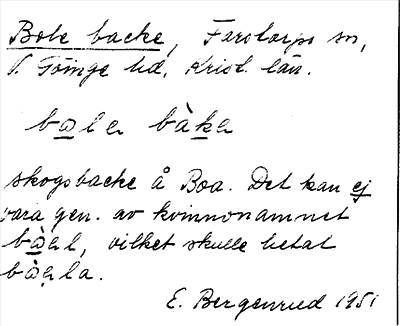 Bole backe, Farstorps sn,
V. Göinge hd, Krist. län.
bolen bàken
skogsbacke å Boa. Det kan ej
vara gen. av kvinnonamnet
bòel, vilket skulle hetat
bòela.
E. Bergenrud 1951